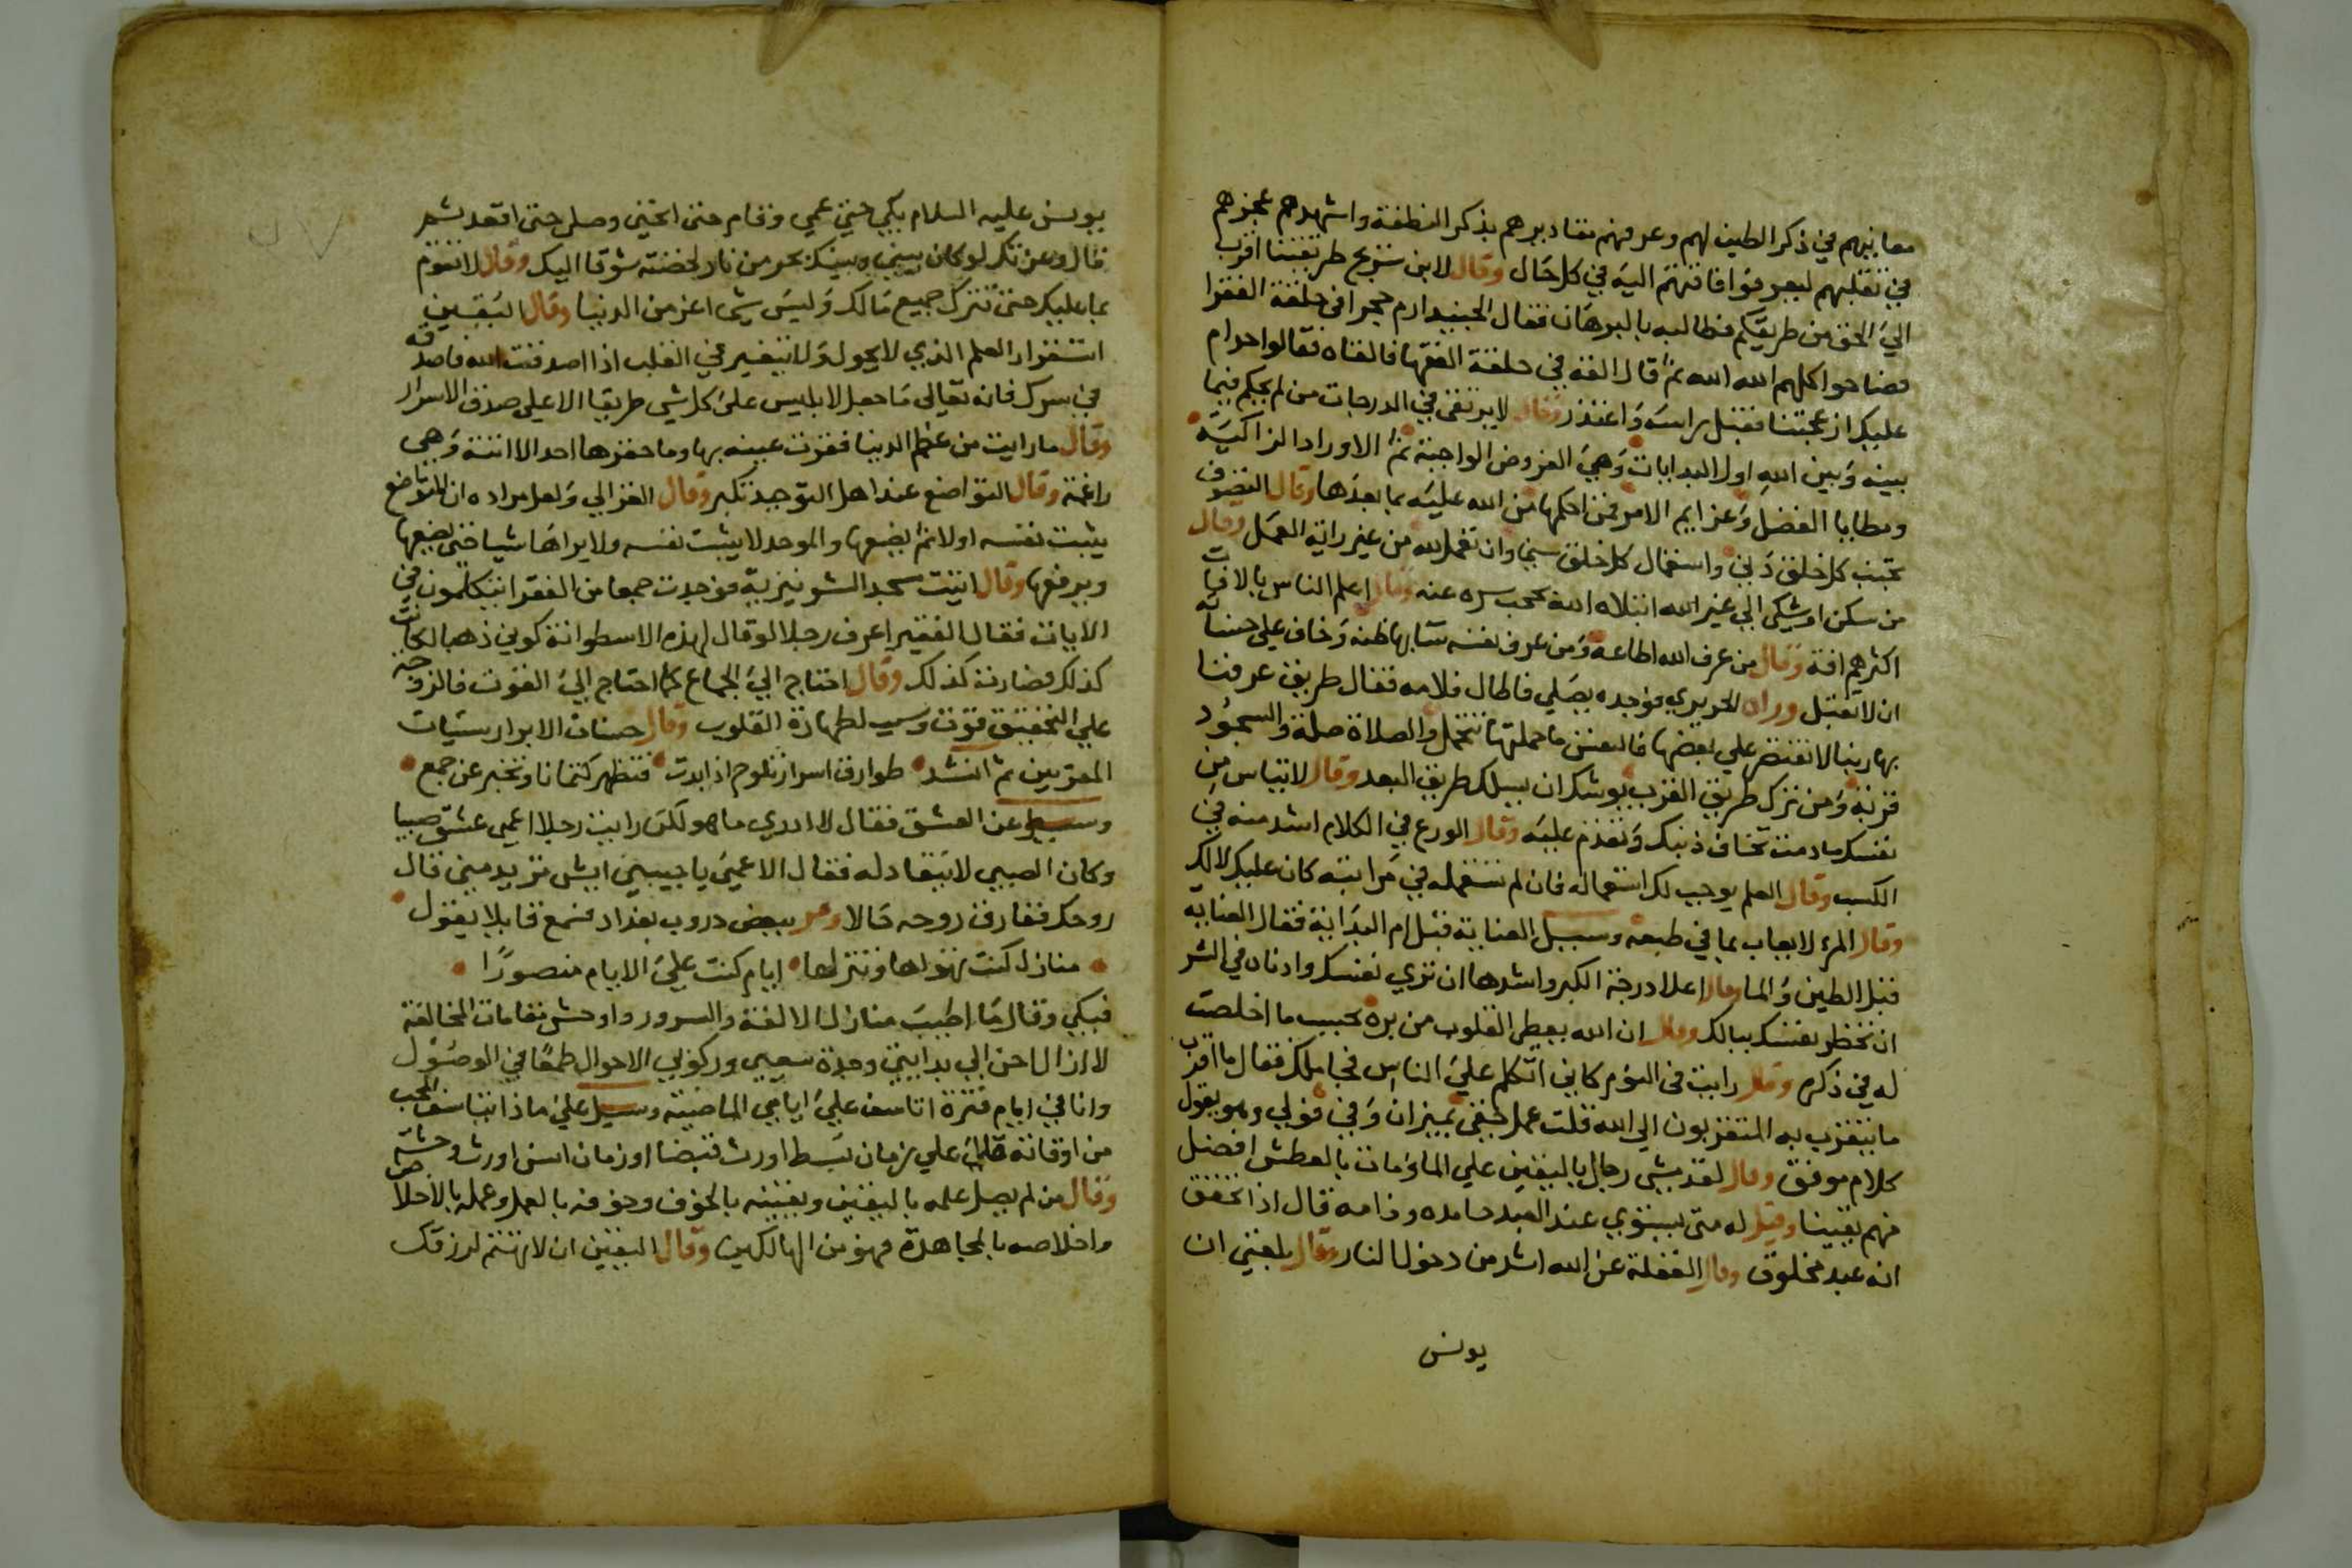 معايبهم في ذكر الطين لهم وعرفهم مقاديرهم بذكر النطفة واشهدهم عجزهم
في تقلبهم ليعرفوا فاقتهم اليه في كل حال وقال لابن سريج طريقتنا اقرب
الي الحق من طريقكم فطالبه بالبرهان فقال الجنيد ارم حجرا في حلقة الفقرا
فصاحوا كلهم الله الله ثم قال القه في حلقة الفقها فالقاه فقالوا حرام
عليك ازعجتنا فقبل راسه واعتذر وقال لا يرتقى في الدرجات من لم يحكم فيما
بينه وبين الله اول البدايات وهي الفروض الواجبة ثم الاوراد الزاكية
ومطايا الفضل وعزايم الامر فمن احكمها من الله عليه بما بعدها وقال التصوف
تجنب كل خلق دني واستعمال كل خلق سني وان تعمل لله من غير راية العمل وقال
من سكن او شكى الي غير الله ابتلاه الله بحجب سره عنه وقال اعلم الناس بالافات
اكثرهم افة وقال من عرف الله اطاعه ومن عرف نفسه سآ بها ظنه وخاف علي حسناته
ان لا تقبل وراه الحريري فوجده يصلي فاطال فلامه فقال طريق عرفنا
بها ربنا لا نقتصر علي بعضها فالنفس ما حملتها تتحمل والصلاة صلة والسجود
قربة ومن ترك طريق القرب يوشك ان يسلك طريق البعد وقال لا تياس من
نفسك ما دمت تخاف ذنبك وتندم عليه وقال الورع في الكلام اشد منه في
الكسب وقال العلم يوجب لك استعماله فان لم تستعمله في مراتبه كان عليك لا لك
وقال المرء لا يعاب بما في طبعه وسيل العناية قبل ام البداية فقال العنايه
قبل الطين والما وقال اعلا درجة الكبر واشدها ان تري نفسك وادناه في الشر
ان تخطر نفسك ببالك وقال ان الله يعطي القلوب من بره بحسب ما اخلصت
له في ذكره وقال رايت في النوم كاني اتكلم علي الناس فجا ملك فقال ما اقرب
ما يتقرب به المتقربون الي الله قلت عمل خفي بميزان وفي فولي وهو يقول
كلام موفق وقال لقد مشي رجال باليقين علي الما ومات بالعطش افضل
منهم يقينا وقيل له متى يستوي عند العبد حامده وذامه قال اذا تحقق
انه عبد مخلوق وقال الغفلة عن الله اشد من دخول النار وقال بلغني ان
يونس
يونس عليه السلام بكي حتي عمي وقام حتى انحنى وصلي حتى اقعد ثم
قال وعزتك لو كان بيني وبينك بحر من نار لخضته شوقا اليك وقال لا تقوم
بما عليك حتى تترك جميع مالك وليس شى اعز من الدنيا وقال اليقين
استقرار العلم الذي لا يحول ولا يتغير في القلب اذا اصدقت الله فاصدقه
في سرك فانه تعالى ما جعل لابليس علي كل شي طريقا الا علي صدق الاسرار
وقال ما رايت من عظم الدنيا فقرت عينه بها وما حقرها احد الا اتته وهي
راغمة وقال التواضع عند اهل التوحيد تكبر وقال الغزالي ولعل مراده ان المتواضع
يثبت نفسه اولا ثم يضعها والموحد لا يثبت نفسه ولا يراها شيا حتى يضعها
ويرفعها وقال اتيت مسجد الشونيزية فوجدت جمعا من الفقرا يتكلمون في
الايات فقال الفقير اعرف رجلا لو قال لهذه الاسطوانة كوني ذهبا لكانت
كذلك فصارت كذلك وقال احتاج الي الجماع كما احتاج الي القوت فالزوجه
علي التحقيق قوت وسبب لطهارة القلوب وقال حسنات الابرار سيئات
المقربين ثم انشد طوارق اسرار تلوح اذا بدت فتظهر كتمانا وتخبر عن جمع
وسيل عن العشق فقال لا ادري ما هو لكن رايت رجلا اعمى عشق صبيا
وكان الصبي لا ينقاد له فقال الاعمي يا حبيبي ايش تريد مني قال
روحك ففارق روحه حالا ومر ببعض دروب بغداد فسمع قايلا يقول
منازل كنت تهواها وتنزلها ايام كنت علي الايام منصورا
فبكي وقال ما اطيب منازل الالفة والسرور واوحش مقامات المخالفة
لا ازال احن الي بدايتي وحدة سعيي وركوبي الاحوال طمعا في الوصول
وانا في ايام فترة اتاسف علي ايامي الماضية وسيل علي ماذا يتاسف المحب
من اوقاته قال علي زمان بسط اورث قبضا او زمان انس اورث وحشة
وقال من لم يصل علمه باليقين ويقينه بالخوف وخوفه بالعمل وعمله بالاخلاص
واخلاصه بالمجاهدة فهو من الهالكين وقال اليقين ان لا تهتم لرزقك